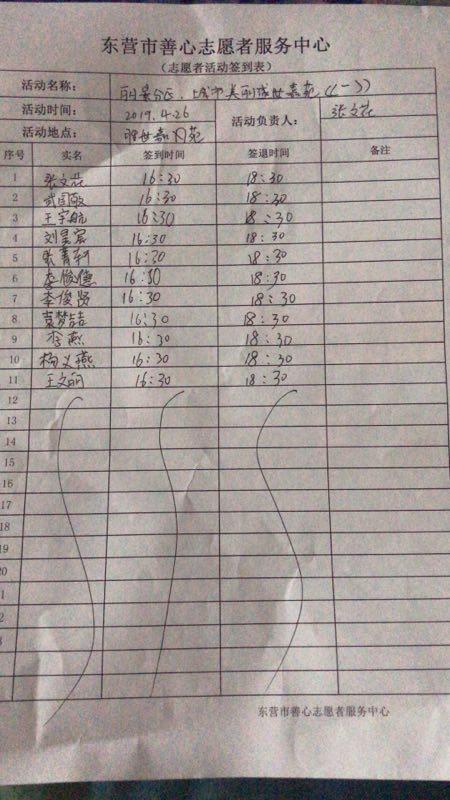 东营市善心志愿者服务中心
（志愿者活动签到表）
活动名称：
活动时间： 2019.4.26 活动负责人： 张文花
活动地点：
序号 实名 签到时间 签退时间 备注
1 张文花 16:30 18:30
2 武国敏 16:30 18:30
3 王宇航 16:30 18:30
4 刘昱宸 16:30 18:30
5 16:30 18:30
6 16:30 18:30
7 李俊贤 16:30 18:30
8 袁梦喆 16:30 18:30
9 李燕 16:30 18:30
10 杨义燕 16:30 18:30
11 王文丽 16:30 18:30
12
13
14
15
16
17
18
19
20
东营市善心志愿者服务中心